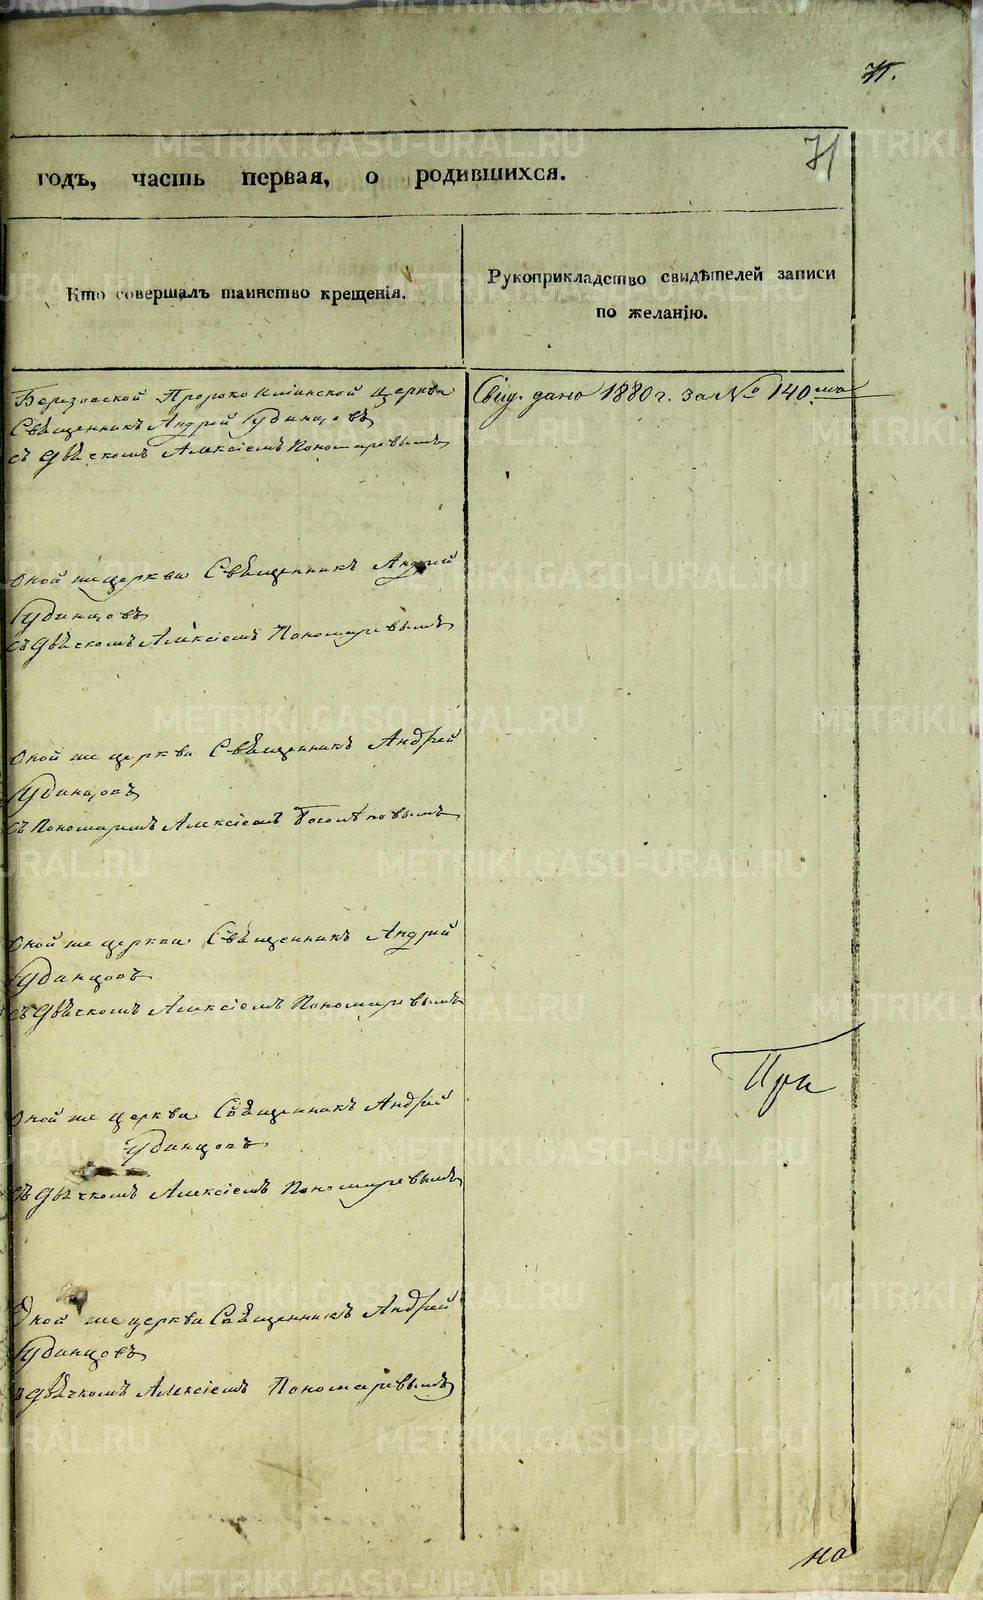 71.
71
годъ, часть первая, о родившихся.
Кто совершалъ таинство крещенія.
Рукоприкладство свидѣтелей записи
по желанію.
Березовской Пророко Илиинской Церкви
Священникъ Андрей Удинцовъ
съ Дьячкомъ Алексіемъ Пономаревымъ
Свид. дано 1880 г. за № 140.
Оной же церкви Священникъ Андрей
Удинцовъ
съ Дьячкомъ Алексіемъ Пономаревымъ
Оной же церкви Священникъ Андрей
Удинцовъ
съ Пономаремъ Алексіемъ
Оной же церкви Священникъ Андрей
Удинцовъ
съ Дьячкомъ Алексіемъ Пономаревымъ
При
Оной же церкви Священникъ Андрей
Удинцовъ
съ Дьячкомъ Алексіемъ Пономаревымъ
Оной же церкви Священникъ Андрей
Удинцовъ
съ Дьячкомъ Алексіемъ Пономаревымъ
на
METRIKI.GASO-URAL.RU